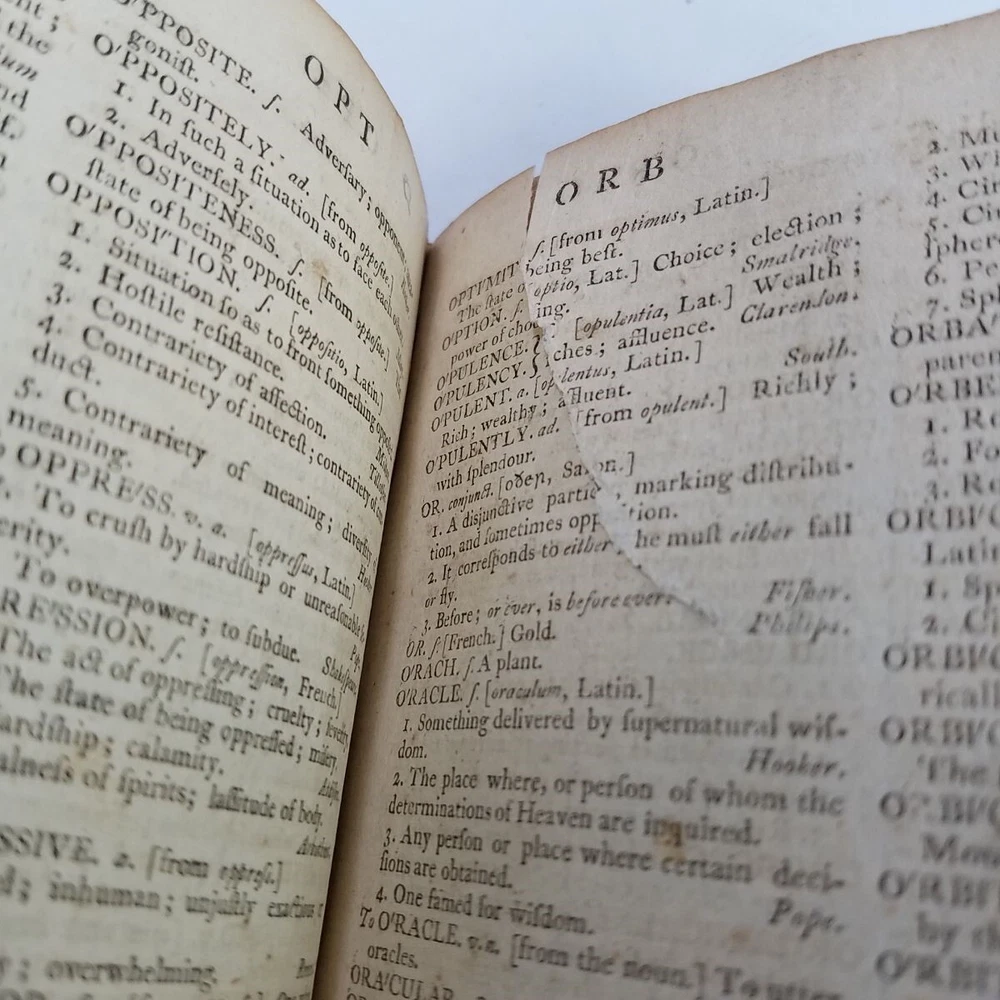 OPT
O'PPOSITE. ſ. Adverſary; opponent;
goniſt.
O'PPOSITELY. ad. [from oppoſite.]
1. In ſuch a ſituation as to face each other.
2. Adverſely.
O'PPOSITENESS. ſ. [from oppoſite.]
ſtate of being oppoſite.
OPPOSI'TION. ſ. [oppoſitio, Latin.]
1. Situation ſo as to front ſomething
2. Hoſtile reſiſtance.
3. Contrariety of affection.
4. Contrariety of intereſt; contrariety of
duct.
5. Contrariety of meaning; diverſity
meaning.
OPPRE'SS. v. a. [oppreſſus, Latin.]
To cruſh by hardſhip or unreaſonable
To overpower; to ſubdue.
RE'SSION. ſ. [oppreſſion, French.]
The act of oppreſſing; cruelty; ſeverity
The ſtate of being oppreſſed; miſery
hardſhip; calamity.
alneſs of ſpirits; laſſitude of body.
SSIVE. a. [from oppreſs.]
inhuman; unjuſtly
overwhelming.
ORB
OPTYMIT ſ. [from optimus, Latin.]
The ſtate o being beſt.
O'PTION. ſ. optio, Lat.] Choice; election;
power of choo ing. Smalridge.
O'PULENCE. } [opulentia, Lat.] Wealth;
O'PULENCY. } ches; affluence. Clarendon.
O'PULENT. a. [opulentus, Latin.]
Rich; wealthy; affluent. South.
O'PULENTLY. ad. [from opulent.] Richly;
with ſplendour.
OR. conjunct. [oðeꞃ, Saxon.]
1. A disjunctive partic , marking diſtribu-
tion, and ſometimes opp ition.
2. It correſponds to either he muſt either fall
or fly.
3. Before; or ever, is before ever. Fiſher.
OR. ſ. [French.] Gold. Philips.
O'RACH. ſ. A plant.
O'RACLE. ſ. [oraculum, Latin.]
1. Something delivered by ſupernatural wiſ-
dom. Hooker.
2. The place where, or perſon of whom the
determinations of Heaven are inquired.
3. Any perſon or place where certain deci-
ſions are obtained. Pope.
4. One famed for wiſdom.
To O'RACLE. v. n. [from the noun.] To utter
oracles.
ORA'CULAR.
2.
3.
4.
5.
ſphere
6.
7.
ORBA
paren
O'RBE
1.
2.
3.
ORBI'C
Latin
1.
2.
ORBI'C
rically
ORBI'C
The
by